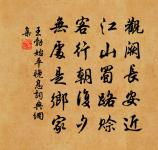 觀闕長安近
江山蜀路賒
客行朝復夕
無處是鄉家
王勃始平晚息詞典網
集